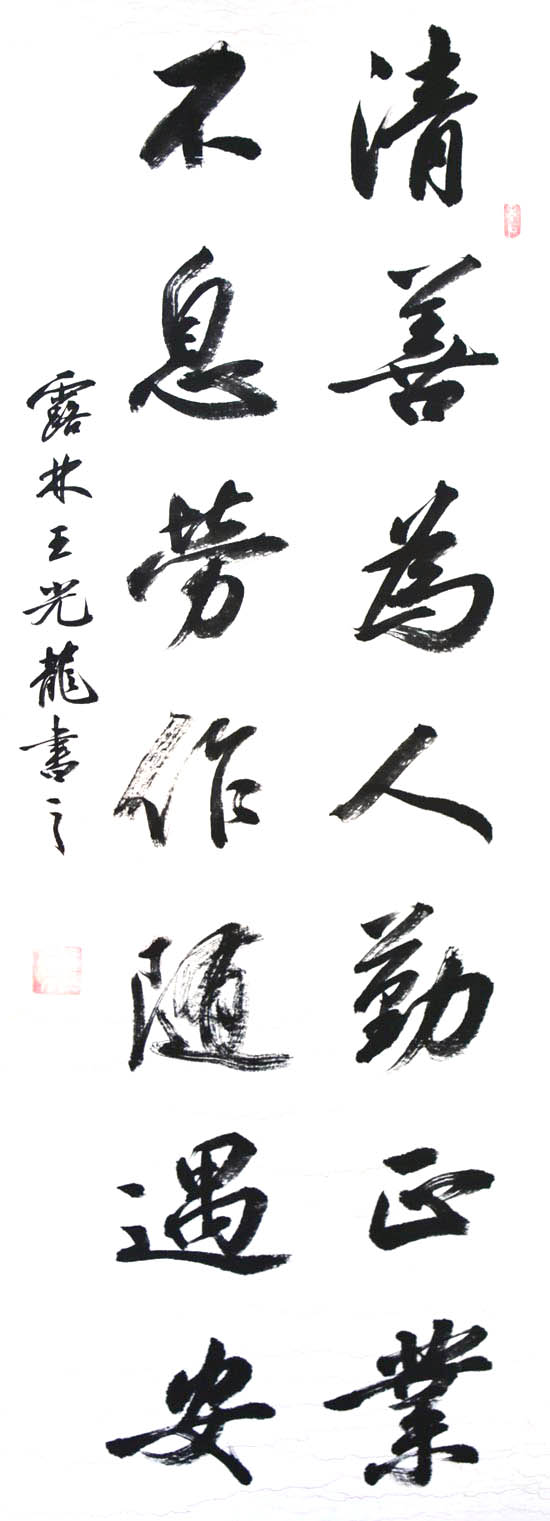 清善為人勤正業
不息勞作随遇安
露林王光龍書之